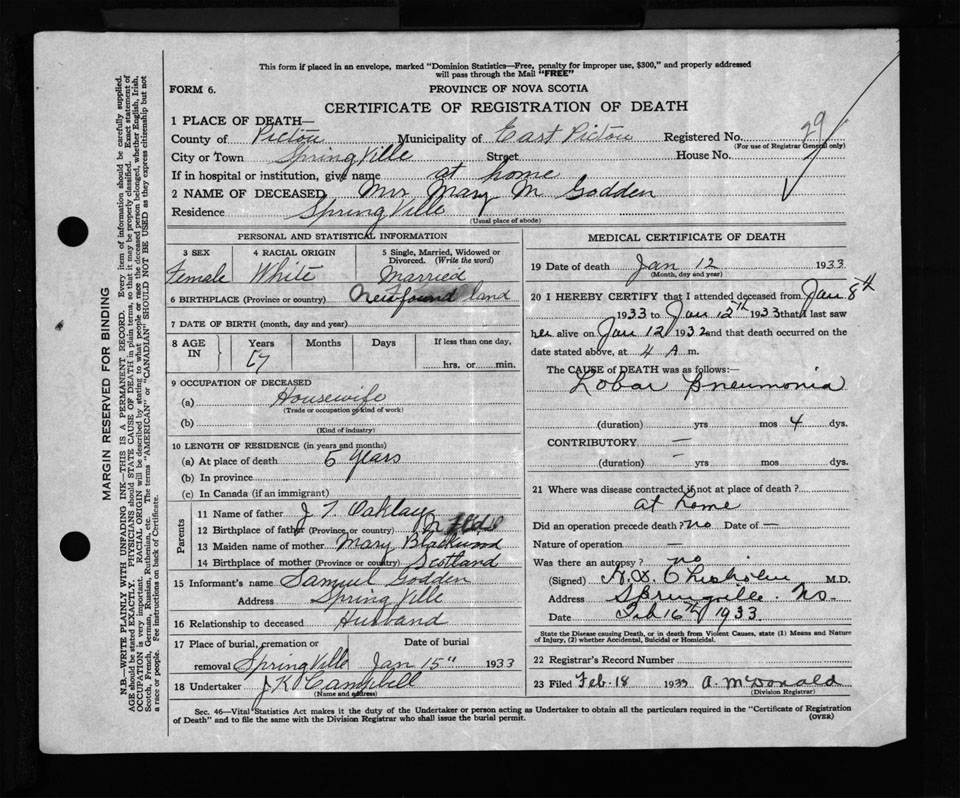 This form if placed in an envelope, marked "Dominion Statistics—Free, penalty for improper use, $300," and properly addressed
will pass through the Mail "FREE"
FORM 6.
PROVINCE OF NOVA SCOTIA
CERTIFICATE OF REGISTRATION OF DEATH
1 PLACE OF DEATH—
County of Pictou Municipality of East Pictou Registered No. 29
(For use of Registrar General only)
City or Town SpringVille Street House No.
If in hospital or institution, give name at home
2 NAME OF DECEASED Mrs Mary M Godden
Residence SpringVille
(Usual place of abode)
PERSONAL AND STATISTICAL INFORMATION
3 SEX 4 RACIAL ORIGIN 5 Single, Married, Widowed or
Divorced. (Write the word)
Female White Married
6 BIRTHPLACE (Province or country) Newfoundland
7 DATE OF BIRTH (month, day and year)
8 AGE IN Years Months Days If less than one day,
hrs. or min.
9 OCCUPATION OF DECEASED
(a) Housewife
(Trade or occupation or kind of work)
(b)
(Kind of industry)
10 LENGTH OF RESIDENCE (in years and months)
(a) At place of death 5 years
(b) In province
(c) In Canada (if an immigrant)
Parents
11 Name of father J. T. Oakley
12 Birthplace of father (Province or country) Nfld
13 Maiden name of mother Mary Blackwood
14 Birthplace of mother (Province or country) Scotland
15 Informant's name Samuel Godden
Address SpringVille
16 Relationship to deceased Husband
17 Place of burial, cremation or Date of burial
removal SpringVille Jan 15" 1933
18 Undertaker J K Campbell
(Name and address)
MEDICAL CERTIFICATE OF DEATH
19 Date of death Jan 12 1933
(Month, day and year)
20 I HEREBY CERTIFY that I attended deceased from Jan 8th
1933 to Jan 12th 1933 that I last saw
her alive on Jan 12 1932 and that death occurred on the
date stated above, at 4 A m.
The CAUSE of DEATH was as follows:—
Lobar Pneumonia
(duration) yrs mos 4 dys.
CONTRIBUTORY —
(duration) — yrs mos dys.
21 Where was disease contracted if not at place of death?
at home
Did an operation precede death? no Date of —
Nature of operation —
Was there an autopsy? no
(Signed) Chisholm M.D.
Address Springville. N.S.
Date Feb 16th 1933
State the Disease causing Death, or in death from Violent Causes, state (1) Means and Nature
of Injury, (2) whether Accidental, Suicidal or Homicidal.
22 Registrar's Record Number
23 Filed Feb-18 1933 A. McDonald
(Division Registrar)
Sec. 46—Vital Statistics Act makes it the duty of the Undertaker or person acting as Undertaker to obtain all the particulars required in the "Certificate of Registration
of Death" and to file the same with the Division Registrar who shall issue the burial permit.
(OVER)
MARGIN RESERVED FOR BINDING
N.B.—WRITE PLAINLY WITH UNFADING INK—THIS IS A PERMANENT RECORD. Every item of information should be carefully supplied.
AGE should be stated EXACTLY. PHYSICIANS should STATE CAUSE OF DEATH in plain terms, so that it may be properly classified. Exact statement of
OCCUPATION is very important. RACIAL ORIGIN will be described by stating to what people or race the deceased person belonged, whether English, Irish,
Scotch, French, German, Russian, Ruthenian, etc. The terms "AMERICAN" or "CANADIAN" SHOULD NOT BE USED as they express citizenship but not
a race or people. See instructions on back of Certificate.